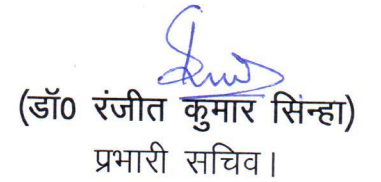 (डॉ0 रंजीत कुमार सिन्हा)
प्रभारी सचिव।